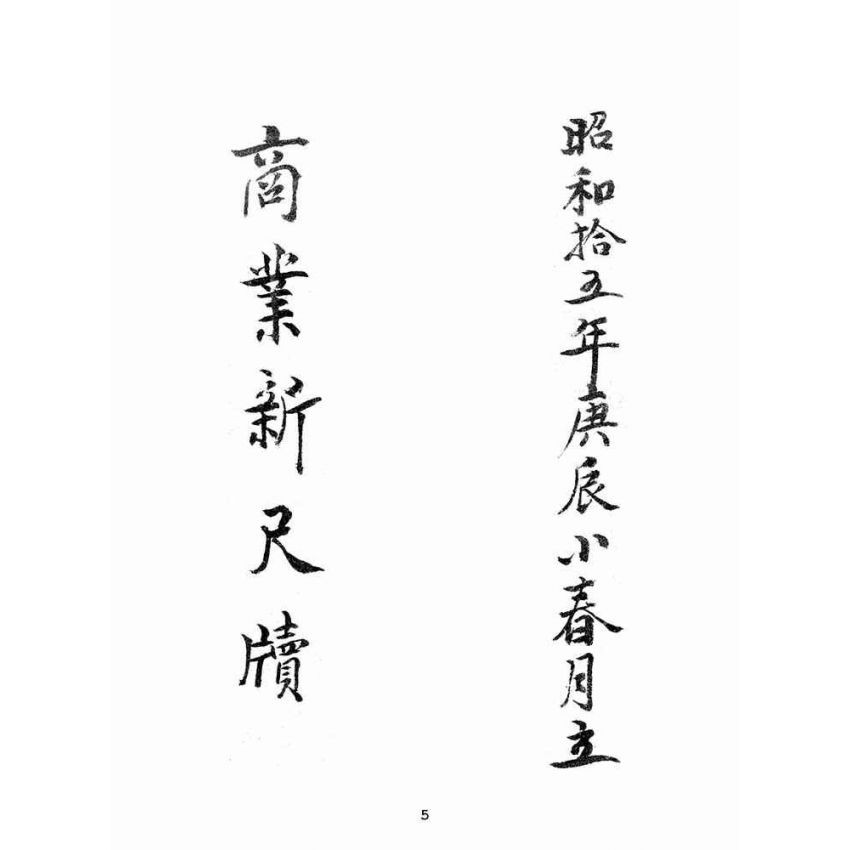 昭和拾五年庚辰小春月立
商業新尺牘
5